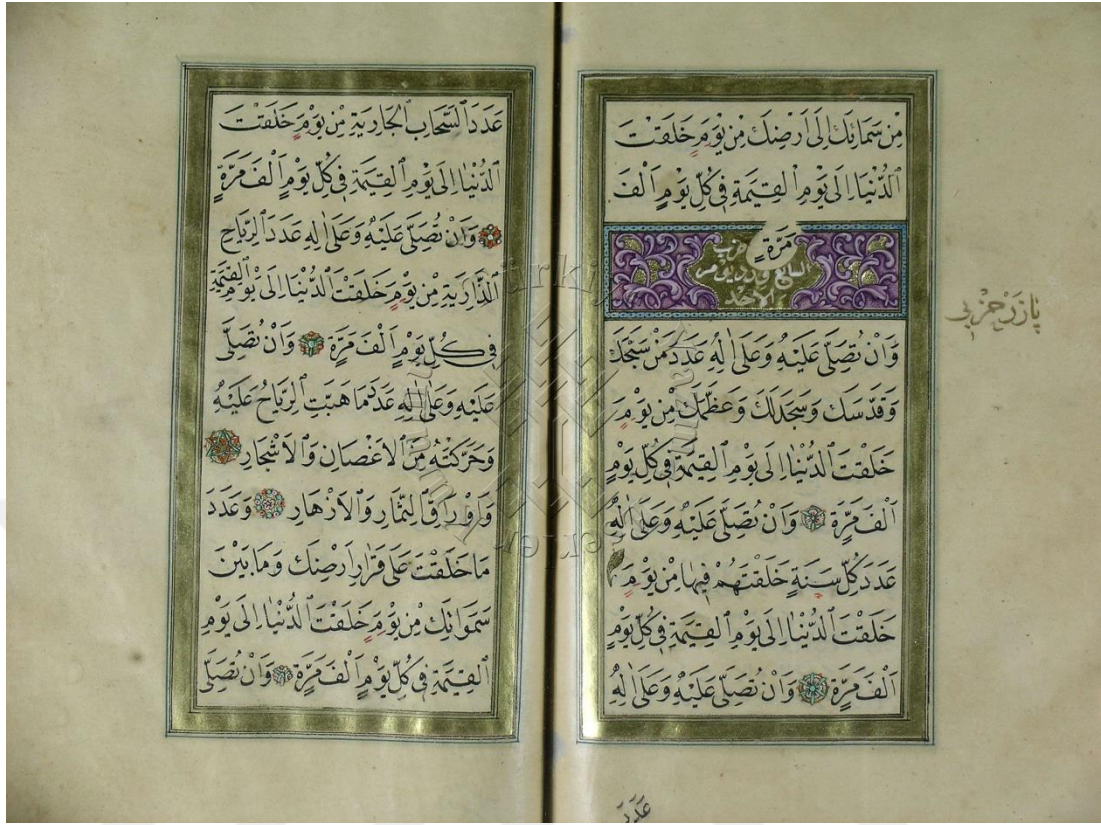 مِنْ سَمَائِكَ اِلَى اَرْضِكَ مِنْ يَوْمِ خَلَقْتَ
الدُّنْيَا اِلَى يَوْمِ الْقِيٰمَةِ فِى كُلِّ يَوْمٍ اَلْفَ
مَرَّةٍ
حزب
السابع ورد يوم
الاحد
پازَرْ حِزْبى
وَاَنْ تُصَلِّىَ عَلَيْهِ وَعَلٰى اٰلِهِ عَدَدَ مَنْ سَبَّحَكَ
وَقَدَّسَكَ وَسَجَدَ لَكَ وَعَظَّمَكَ مِنْ يَوْمِ
خَلَقْتَ الدُّنْيَا اِلَى يَوْمِ الْقِيٰمَةِ فِى كُلِّ يَوْمٍ
اَلْفَ مَرَّةٍ وَاَنْ تُصَلِّىَ عَلَيْهِ وَعَلٰى اٰلِهِ
عَدَدَ كُلِّ سَنَةٍ خَلَقْتَهُمْ فِيهَا مِنْ يَوْمِ
خَلَقْتَ الدُّنْيَا اِلَى يَوْمِ الْقِيٰمَةِ فِى كُلِّ يَوْمٍ
اَلْفَ مَرَّةٍ وَاَنْ تُصَلِّىَ عَلَيْهِ وَعَلٰى اٰلِهِ
عَدَدَ
عَدَدَ السَّحَابِ الْجَارِيَةِ مِنْ يَوْمِ خَلَقْتَ
الدُّنْيَا اِلَى يَوْمِ الْقِيٰمَةِ فِى كُلِّ يَوْمٍ اَلْفَ مَرَّةٍ
وَاَنْ تُصَلِّىَ عَلَيْهِ وَعَلٰى اٰلِهِ عَدَدَ الرِّيَاحِ
الذَّارِيَةِ مِنْ يَوْمِ خَلَقْتَ الدُّنْيَا اِلَى يَوْمِ الْقِيٰمَةِ
فِى كُلِّ يَوْمٍ اَلْفَ مَرَّةٍ وَاَنْ تُصَلِّىَ
عَلَيْهِ وَعَلٰى اٰلِهِ عَدَدَ مَا هَبَّتِ الرِّيَاحُ عَلَيْهِ
وَحَرَّكَتْهُ مِنَ الْاَغْصَانِ وَالْاَشْجَارِ
وَاَوْرَاقِ الثِّمَارِ وَالْاَزْهَارِ وَعَدَدَ
مَا خَلَقْتَ عَلَى قَرَارِ اَرْضِكَ وَمَا بَيْنَ
سَمٰوَاتِكَ مِنْ يَوْمِ خَلَقْتَ الدُّنْيَا اِلَى يَوْمِ
الْقِيٰمَةِ فِى كُلِّ يَوْمٍ اَلْفَ مَرَّةٍ وَاَنْ تُصَلِّىَ